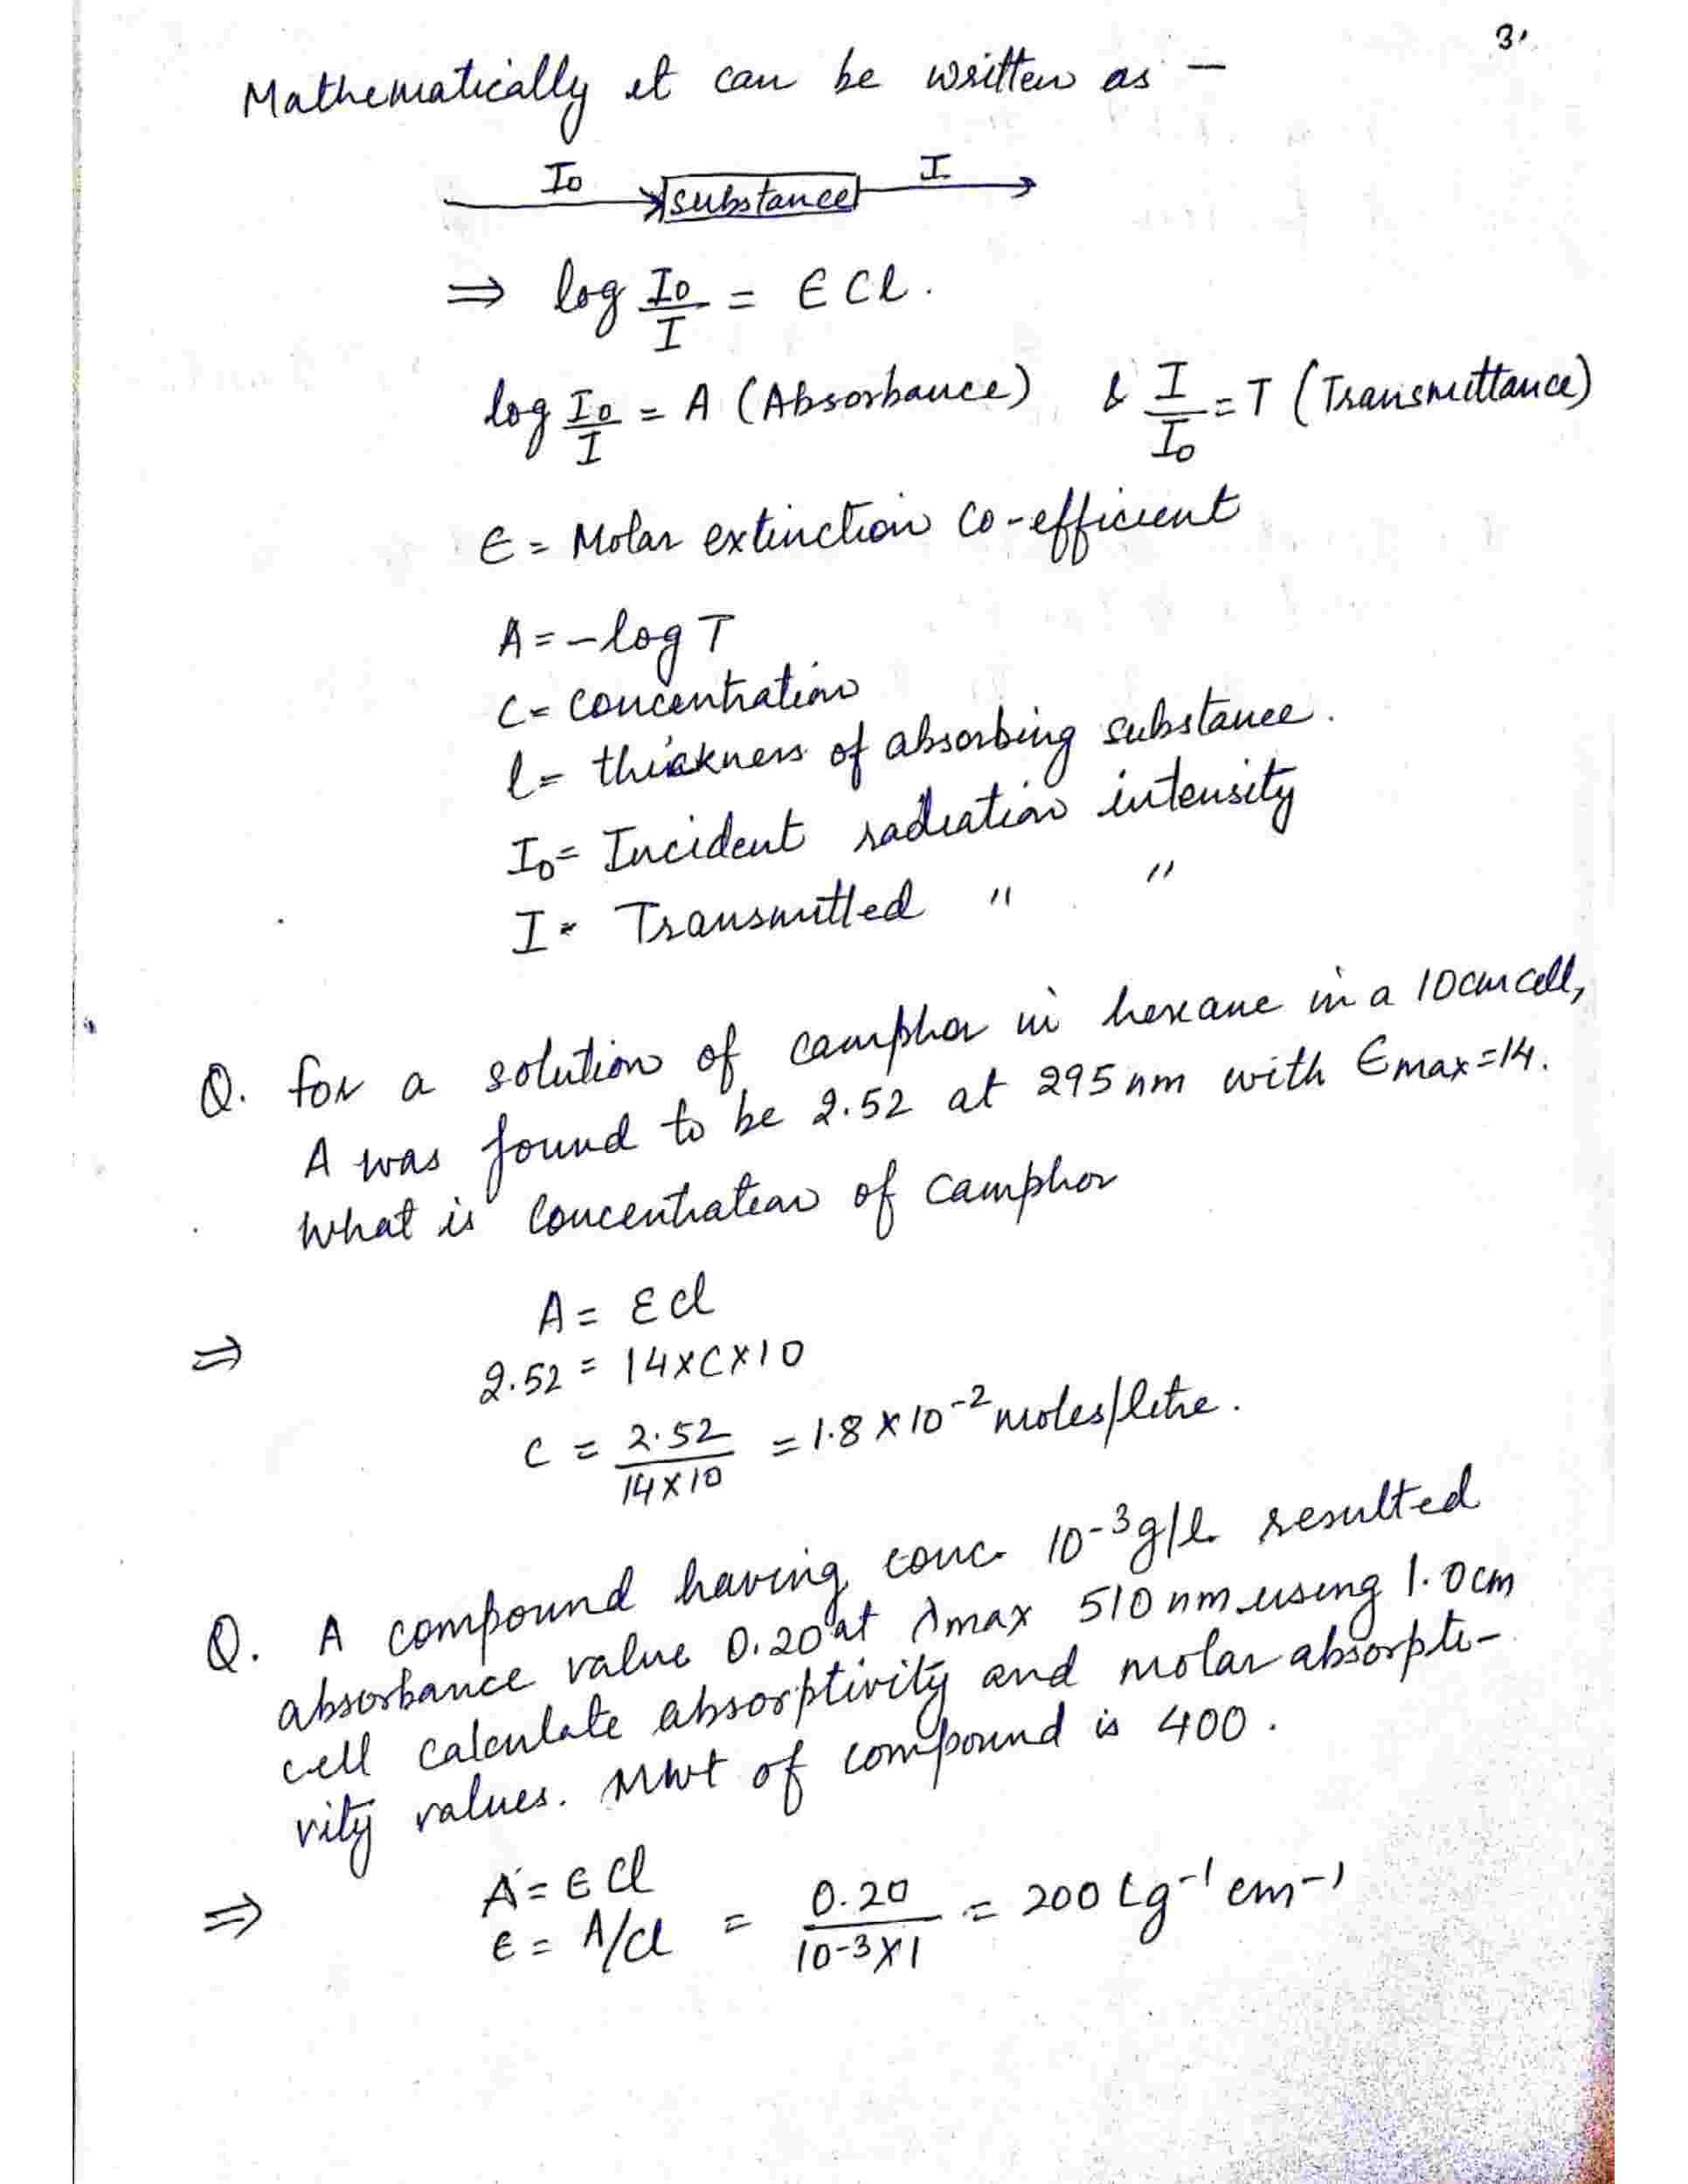 3.
Mathematically it can be written as –
I₀ substance I
⇒ log I₀/I = ∈Cl.
log I₀/I = A (Absorbance) & I/I₀ = T (Transmittance)
∈ = Molar extinction co-efficient
A = -log T
C = concentration
l = thickness of absorbing substance.
I₀ = Incident radiation intensity
I = Transmitted " "
Q. for a solution of camphor in hexane in a 10cm cell,
A was found to be 2.52 at 295 nm with ∈max=14.
What is concentration of camphor
⇒ A = ℇcl
2.52 = 14×C×10
C = 2.52/14×10 = 1.8 × 10⁻² moles/litre.
Q. A compound having conc. 10⁻³g/l resulted
absorbance value 0.20 at λmax 510 nm using 1.0cm
cell calculate absorptivity and molar absorpti-
vity values. MWt of compound is 400.
⇒ A = ∈Cl
∈ = A/Cl = 0.20/10⁻³×1 = 200 Lg⁻¹ cm⁻¹